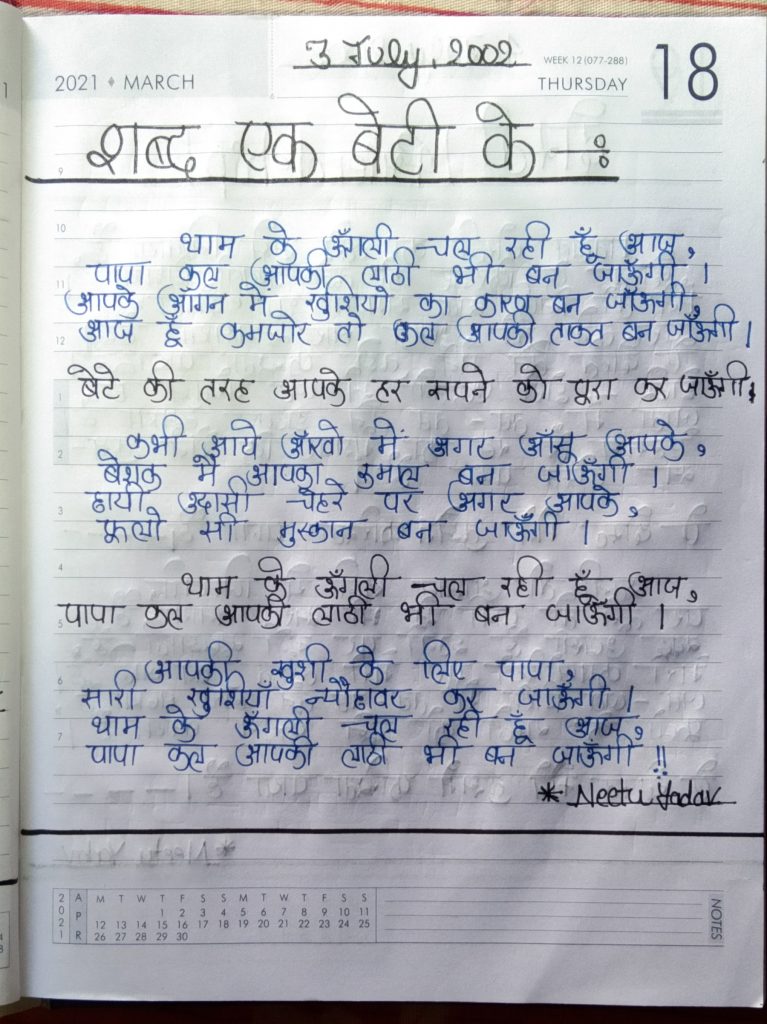 3 July, 2002
WEEK 12 (077-288)
2021 ♦ MARCH
THURSDAY
18
शब्द एक बेटी के –:
9
10
थाम के ऊँगली चल रही हूँ आज,
पापा कल आपकी लाठी भी बन जाऊँगी ।
11
आपके आँगन मे खुशियो का कारण बन जाँऊगी,
आज हूँ कमजोर तो कल आपकी ताकत बन जाँऊगी ।
12
बेटे की तरह आपके हर सपने को पूरा कर जाऊँगी।
1
कभी आये आँखो में अगर आँसू आपके,
2
बेशक मैं आपका रुमाल बन जाऊँगी ।
छायी उदासी चेहरे पर अगर आपके,
3
फूलो सी मुस्कान बन जाऊँगी ।
4
थाम के ऊँगली चल रही हूँ आज,
पापा कल आपकी लाठी भी बन जाऊँगी ।
5
आपकी खुशी के लिए पापा,
6
सारी खुशियाँ न्यौछावर कर जाऊँगी ।
थाम के ऊँगली चल रही हूँ आज,
7
पापा कल आपकी लाठी भी बन जाऊँगी !!
* Neetu Yadav
2021 APR
M T W T F S S M T W T F S S M T W T F S S
1 2 3 4 5 6 7 8 9 10 11
12 13 14 15 16 17 18 19 20 21 22 23 24 25
26 27 28 29 30
NOTES